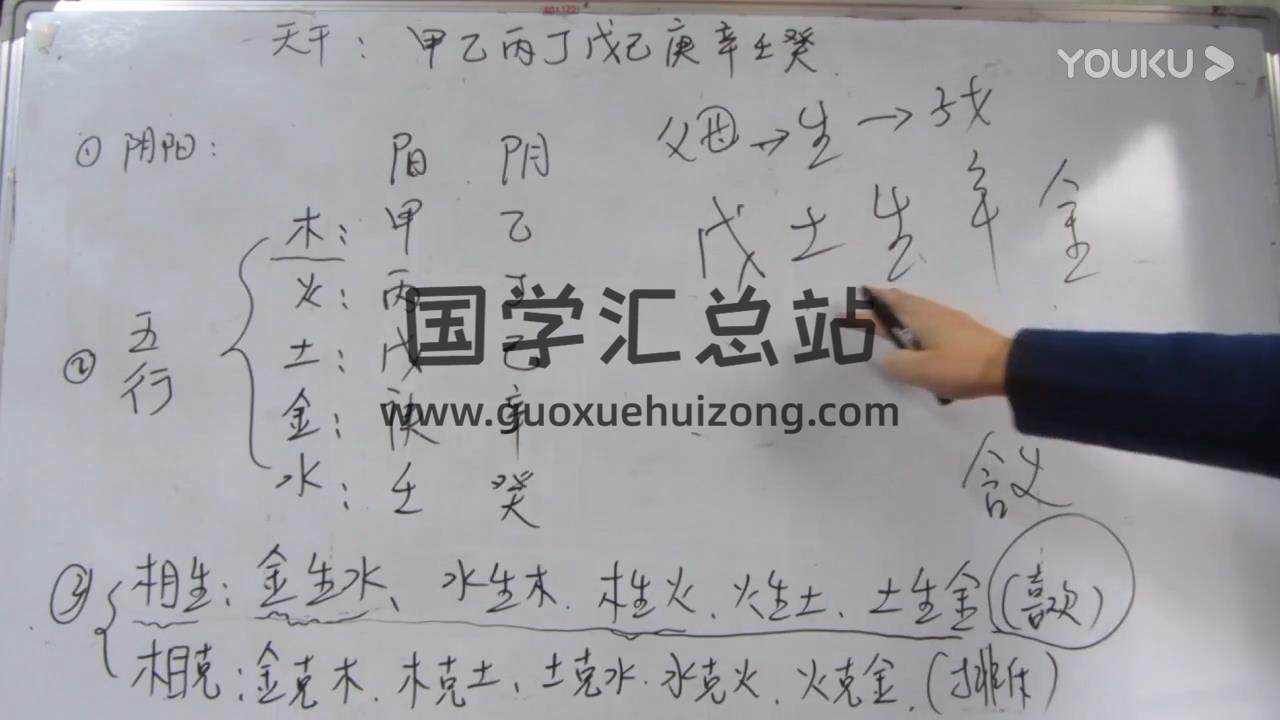 YOUKU
天干：甲乙丙丁戊己庚辛壬癸
① 阴阳：
阳 阴
父母→生→我
木：甲 乙
戊土生辛金
火：丙 丁
② 五行
土：戊 己
金：庚 辛
水：壬 癸
国学汇总站
www.guoxuehuizong.com
含义
③ 相生：金生水、水生木．木生火、火生土、土生金（喜欢）
相克：金克木．木克土、土克水．水克火、火克金．（排斥）